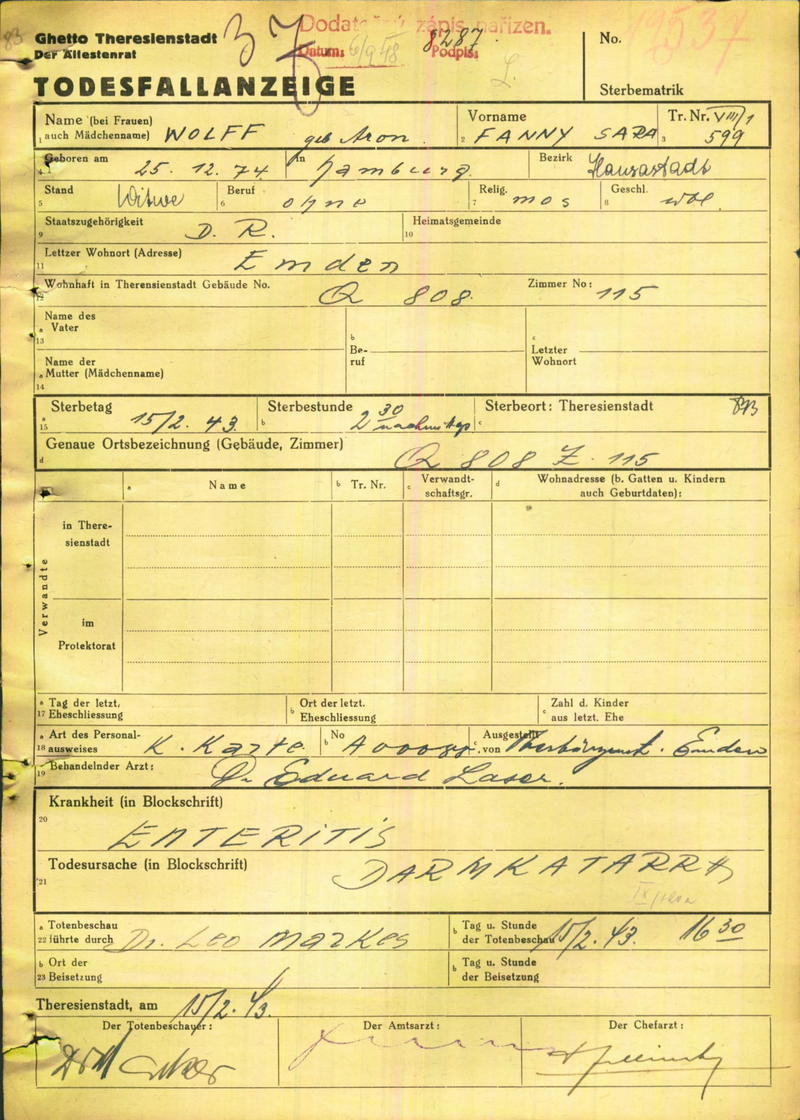 83
Ghetto Theresienstadt
Der Ältestenrat
37
Dodatečný zápis nařízen.
Datum: 6/9 48 Podpis:
8287
L.
No.
19537
TODESFALLANZEIGE
Sterbematrik
Name (bei Frauen) auch Mädchenname) WOLFF geb Aron
Vorname FANNY SARA
Tr. Nr. VIII/1 599
Geboren am 25. 12. 74 in Hamburg
Bezirk Hansastadt
Stand Witwe Beruf ohne Relig. mos Geschl. wbl.
Staatszugehörigkeit D. R. Heimatsgemeinde
Lettzer Wohnort (Adresse) Emden
Wohnhaft in Therensienstadt Gebäude No. Q 808 Zimmer No: 115
Name des Vater
Be-ruf
Letzter Wohnort
Name der Mutter (Mädchenname)
Sterbetag 15/2. 43. Sterbestunde 2 30 nachmittgs Sterbeort: Theresienstadt
Genaue Ortsbezeichnung (Gebäude, Zimmer) Q 808 Z. 115
Name Tr. Nr. Verwandt-schaftsgr. Wohnadresse (b. Gatten u. Kindern auch Geburtdaten):
Verwandte
in There-sienstadt
im Protektorat
Tag der letzt. Eheschliessung Ort der letzt. Eheschliessung Zahl d. Kinder aus letzt. Ehe
Art des Personal-ausweises K. Karte No Ausgestellt von Emden
Behandelnder Arzt: Dr Eduard Laser.
Krankheit (in Blockschrift)
ENTERITIS
Todesursache (in Blockschrift) DARMKATARRH
Totenbeschau führte durch Dr. Leo Markes Tag u. Stunde der Totenbeschau 15/2. 43. 16 30
Ort der Beisetzung Tag u. Stunde der Beisetzung
Theresienstadt, am 15/2. 43.
Der Totenbeschauer: Der Amtsarzt: Der Chefarzt: